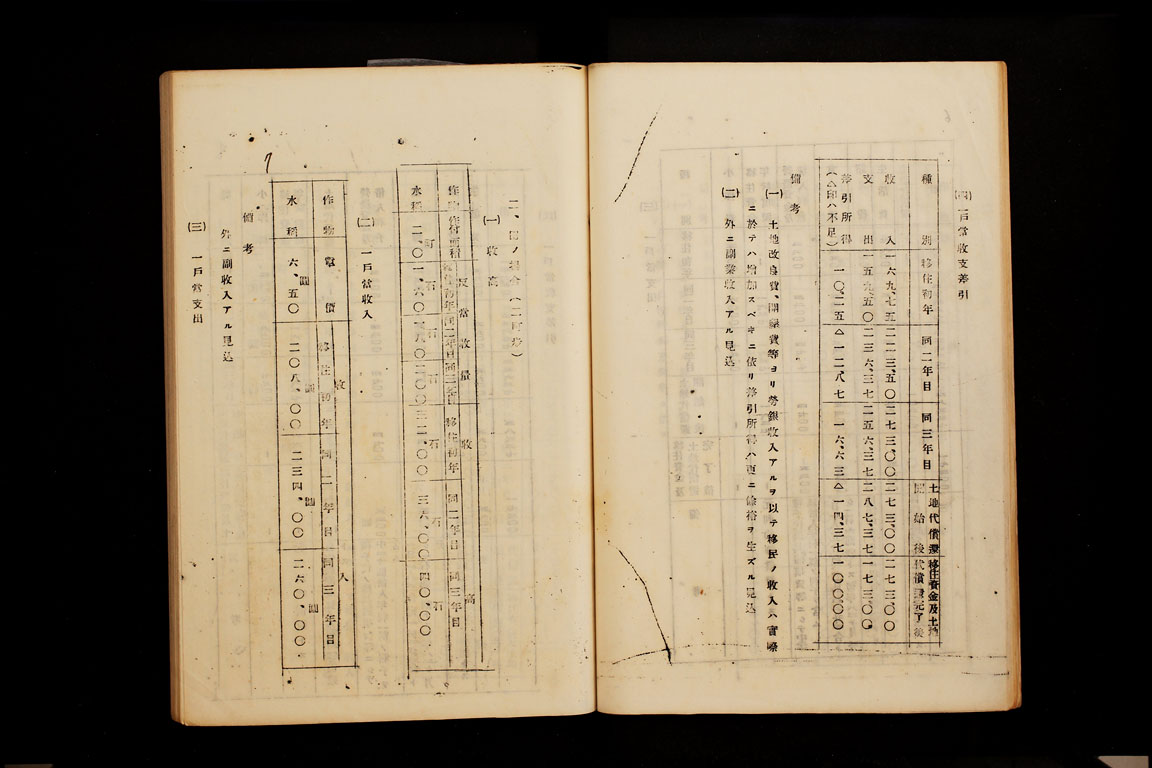 (四) 一戶當收支差引
種別 移住初年 同二年目 同三年目 土地代償還開始後 移住資金及土地代償還完了後
收入 一六九、七五 二二三、五〇 二七三、〇〇 二七三、〇〇 二七三、〇〇
支出 一五九、五〇 二三六、三七 二五六、三七 二八七、三七 一七三、〇〇
差引所得(△印ハ不足) 一〇、二五 △一二、八七 一六、六三 △一四、三七 一〇〇、〇〇
備考
(一) 土地改良費、開墾費等ヨリ勞銀收入アルヲ以テ移民ノ收入ハ實際
ニ於テハ增加スベキニ依リ差引所得ハ更ニ餘裕ヲ生ズル見込
(二) 外ニ副業收入アル見込
二、田ノ場合(二町步)
(一) 收高
作物 作付面積 反當收量 收高
移住初年 同二年目 同三年目 移住初年 同二年目 同三年目
水稻 二、〇町 一、六〇石 一、八〇石 二、〇〇石 三二、〇〇石 三六、〇〇石 四〇、〇〇石
(二) 一戶當收入
作物 單價 收入
移住初年 同二年目 同三年目
水稻 六、五〇圓 二〇八、〇〇圓 二三四、〇〇圓 二六〇、〇〇圓
備考
外ニ副收入アル見込
(三) 一戶當支出